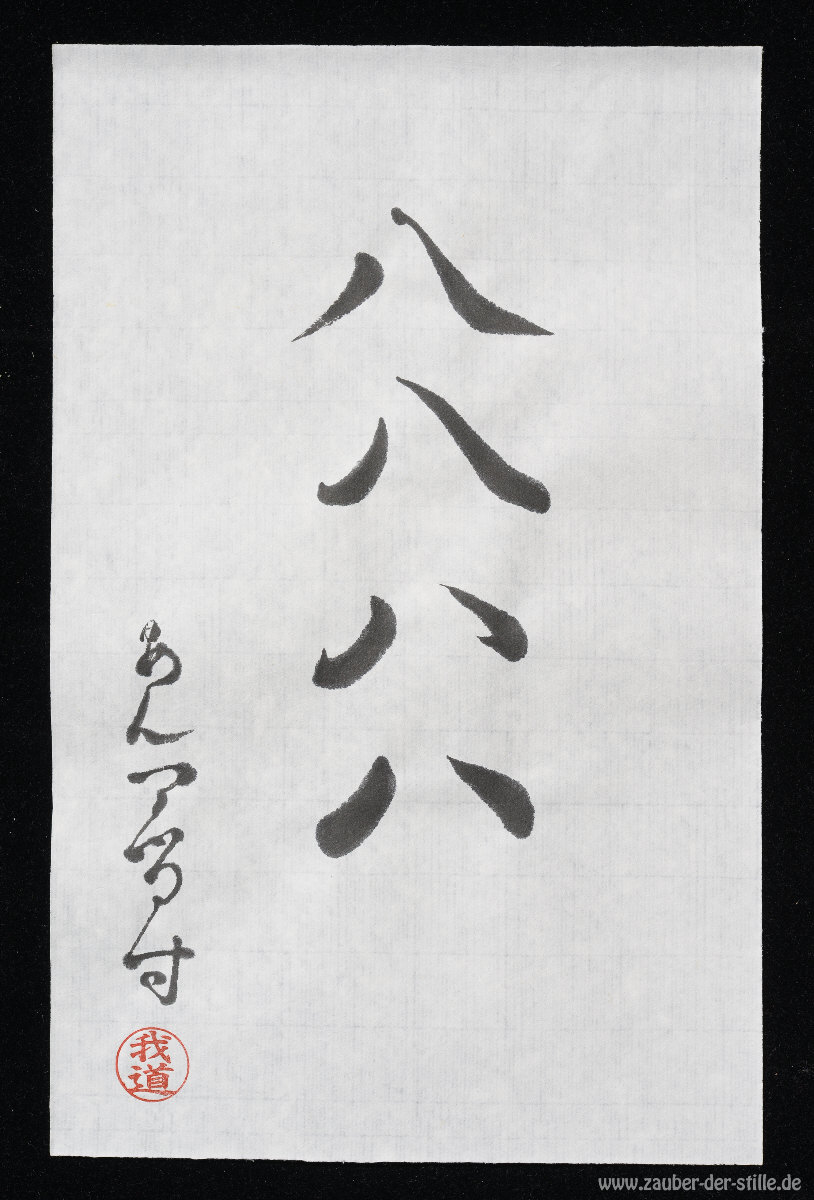 八八八八
あん
我道
www.zauber-der-stille.de